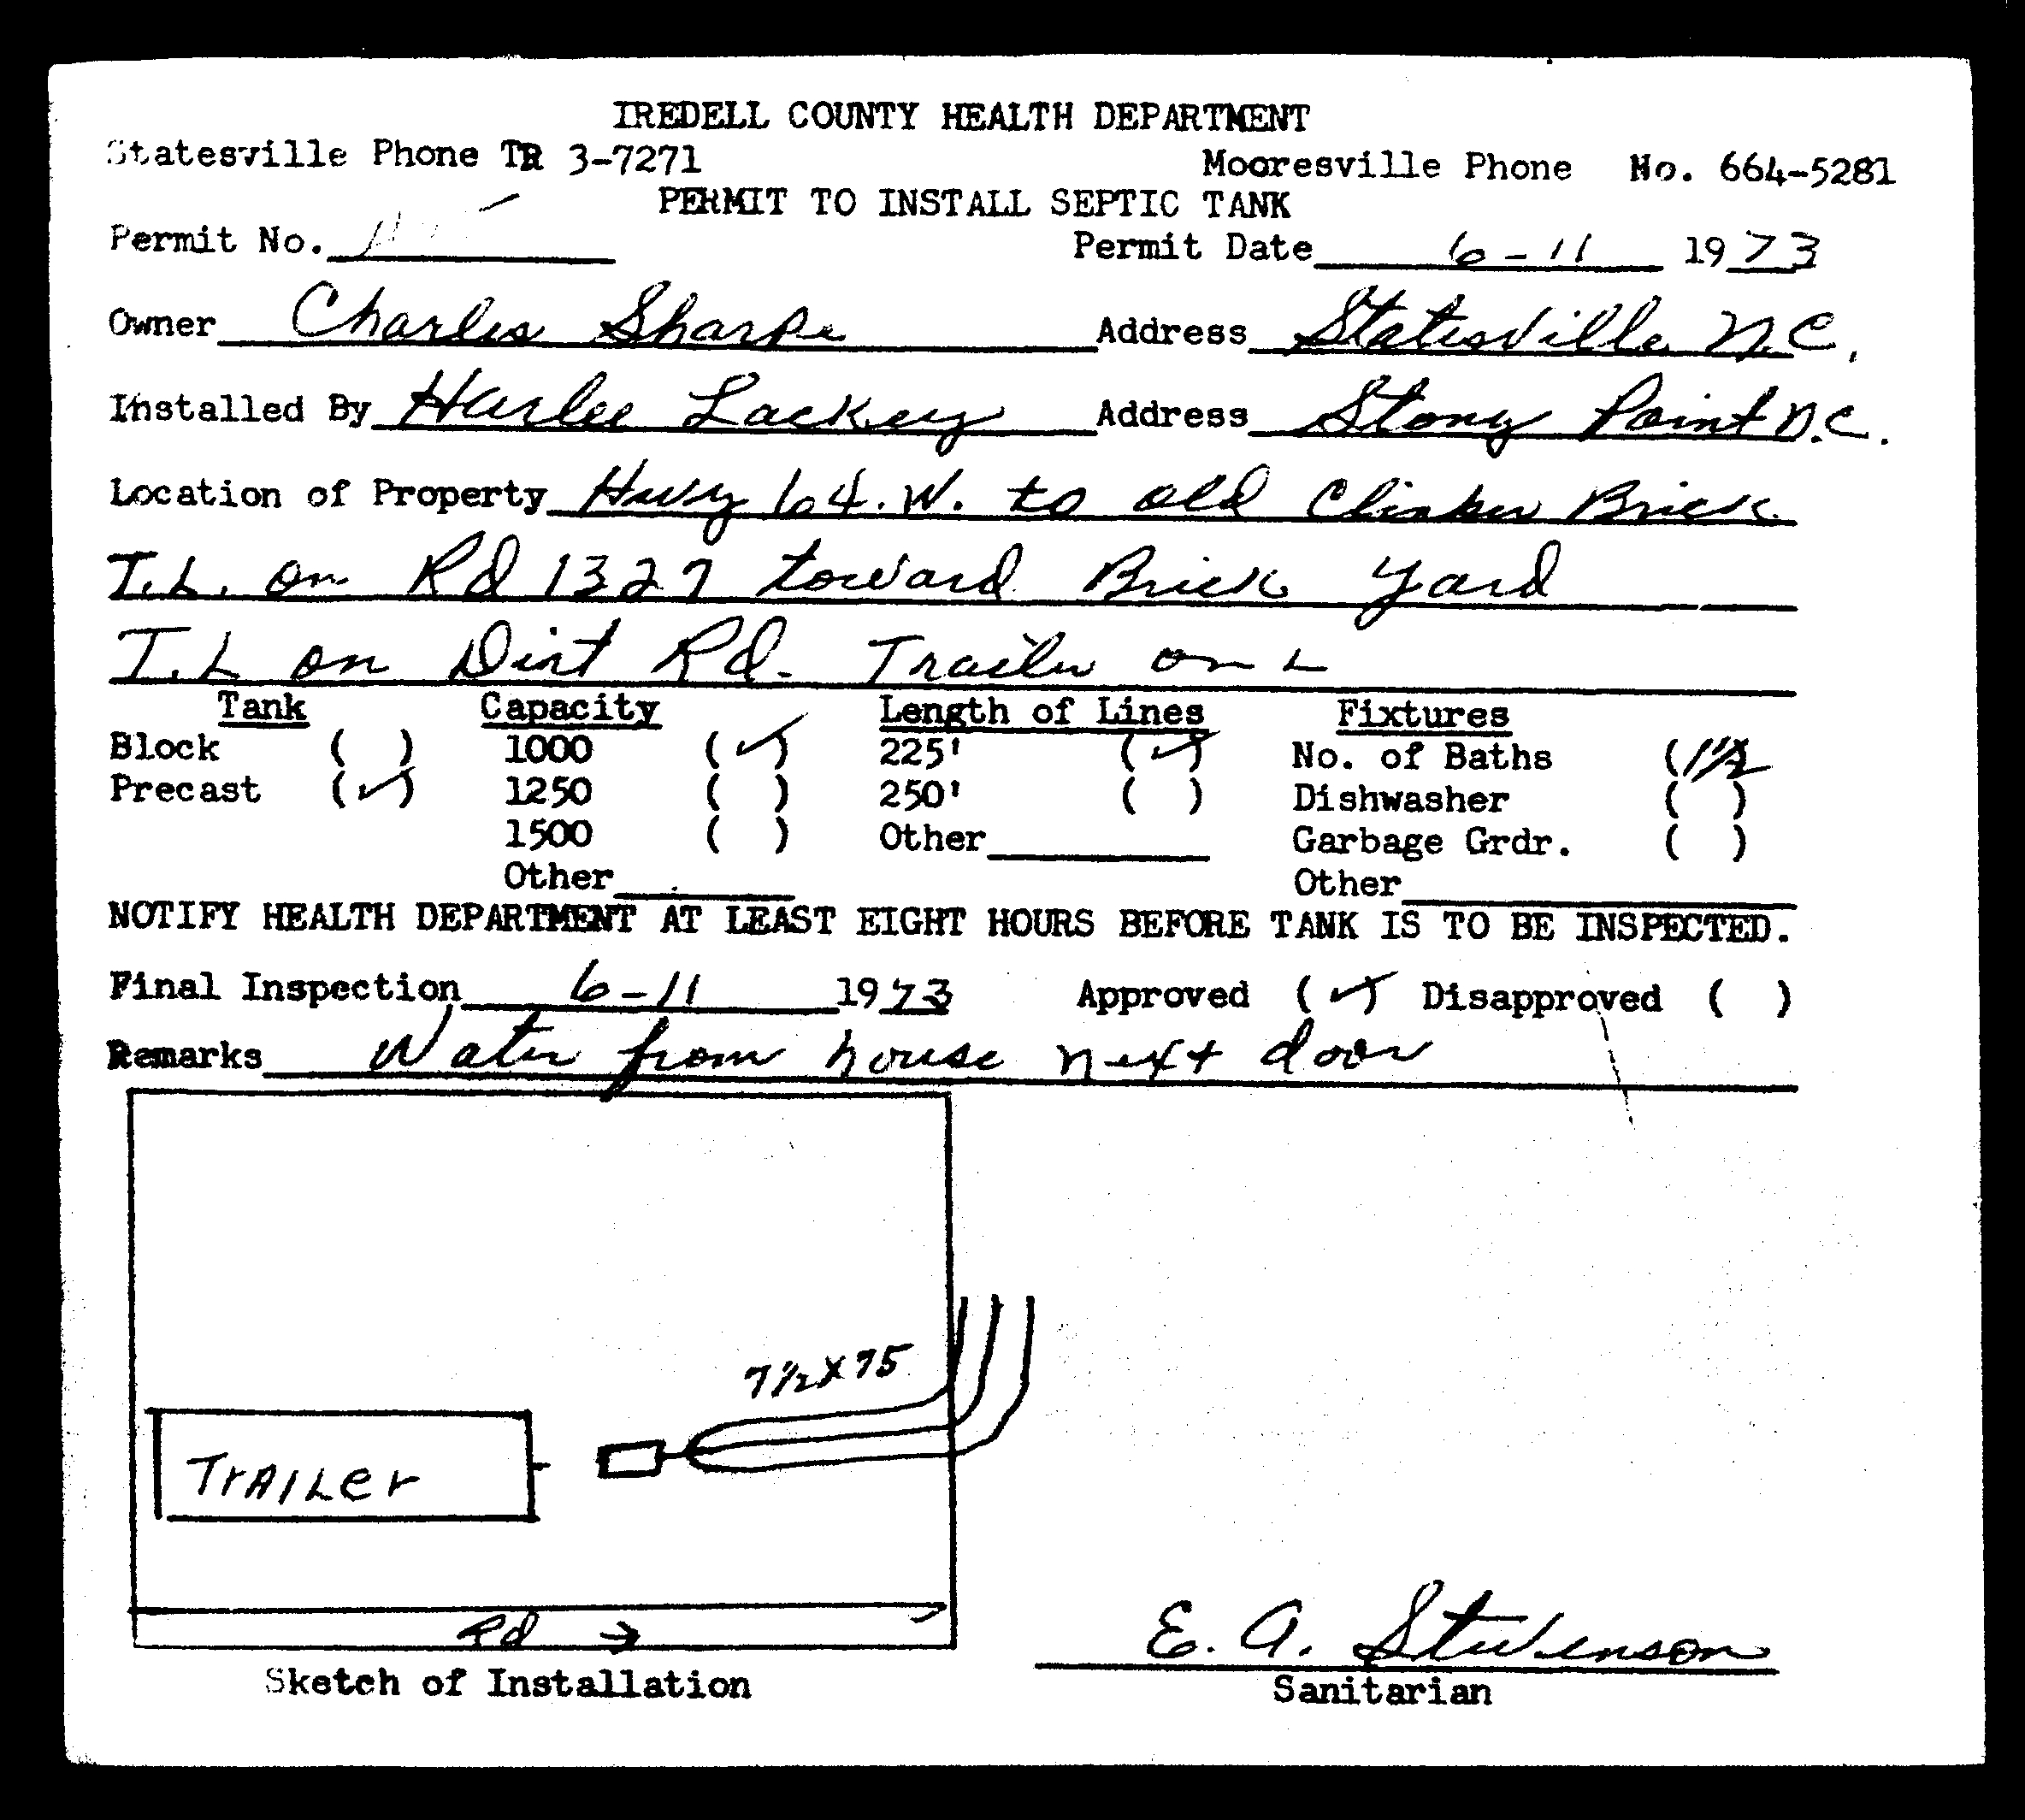 IREDELL COUNTY HEALTH DEPARTMENT
Statesville Phone TR 3-7271 Mooresville Phone No. 664-5281
PERMIT TO INSTALL SEPTIC TANK
Permit No. Permit Date 6-11 1973
Owner Charles Sharpe Address Statesville N.C.
Installed By Harlee Lackey Address Stony Point N.C.
Location of Property Hwy 64.W. to old Clinker Brick
T.L. on Rd 1327 toward Brick yard
T.L on Dirt Rd. Trailer on L
Tank Capacity Length of Lines Fixtures
Block ( ) 1000 (✓) 225' (✓) No. of Baths (1½)
Precast (✓) 1250 ( ) 250' ( ) Dishwasher ( )
1500 ( ) Other Garbage Grdr. ( )
Other Other
NOTIFY HEALTH DEPARTMENT AT LEAST EIGHT HOURS BEFORE TANK IS TO BE INSPECTED.
Final Inspection 6-11 1973 Approved (✓) Disapproved ( )
Remarks Water from house next door
7½X75
TrAILer
Rd →
E. A. Stevenson
Sketch of Installation Sanitarian